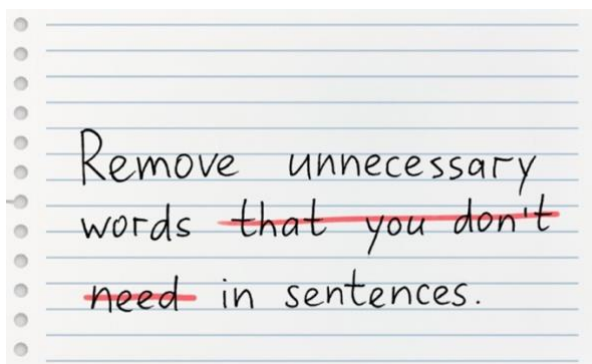 Remove unnecessary
words that you don't
need in sentences.